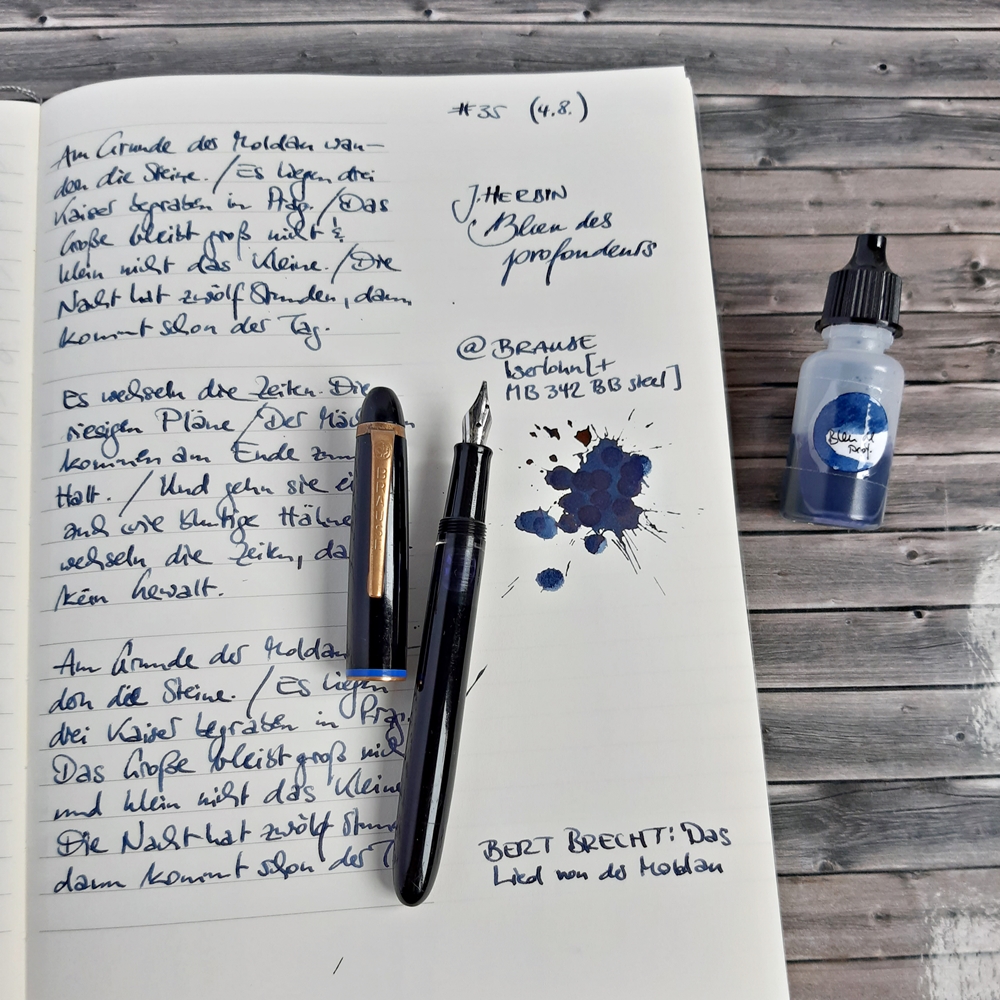 Am Grunde der Moldau wan-
dern die Steine. / Es liegen drei
Kaiser begraben in Prag. / Das
Große bleibt groß nicht &
klein nicht das Kleine. / Die
Nacht hat zwölf Stunden, dann
kommt schon der Tag.
Es wechseln die Zeiten. Die
riesigen Pläne / Der Mäch
kommen am Ende zum
Halt. / Und gehn sie ei
auch wie blutige Hähne
wechseln die Zeiten, da
kein Gewalt.
Am Grunde der Moldau
dern die Steine. / Es liegen
drei Kaiser begraben in Prag.
Das Große bleibt groß nich
und klein nicht das Kleine
Die Nacht hat zwölf Stun
dann kommt schon der T
#35 (4.8.)
J. HERBIN
Bleu des
profondeurs
@ BRAUSE
Iserlohn [+
MB 342 BB steel]
BERT BRECHT: Das
Lied von der Moldau
Bleu d
Prof.